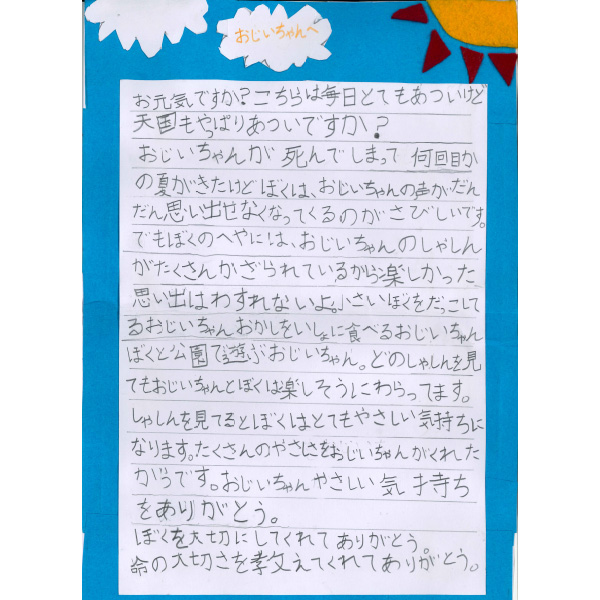 おじいちゃんへ
お元気ですか?こちらは毎日とてもあついけど
天国もやっぱりあついですか?
おじいちゃんが死んでしまって何回目か
の夏がきたけどぼくは、おじいちゃんの声がだん
だん思い出せなくなってくるのがさびしいです。
でもぼくのへやには、おじいちゃんのしゃしん
がたくさんかざられているから楽しかった
思い出はわすれないよ。小さいぼくをだっこして
るおじいちゃんおかしをいしょに食べるおじいちゃん
ぼくと公園で遊ぶおじいちゃん。どのしゃしんを見
てもおじいちゃんとぼくは楽しそうにわらってます。
しゃしんを見てるとぼくはとてもやさしい気持ちに
なります。たくさんのやさしさをおじいちゃんがくれた
からです。おじいちゃんやさしい気持ち
をありがとう。
ぼくを大切にしてくれてありがとう。
命の大切さを教えてくれてありがとう。